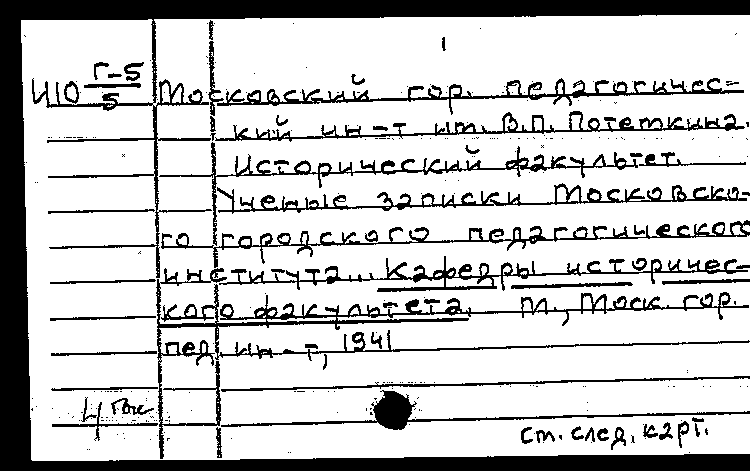 1
И10 Г-5/5 Московский гор. педагогичес-
кий ин-т им. В.П. Потемкина.
Исторический факультет.
Ученые записки Московско-
го городского педагогического
института... Кафедры историчес-
кого факультета. М., Моск. гор.
пед. ин-т, 1941
См. след. карт.